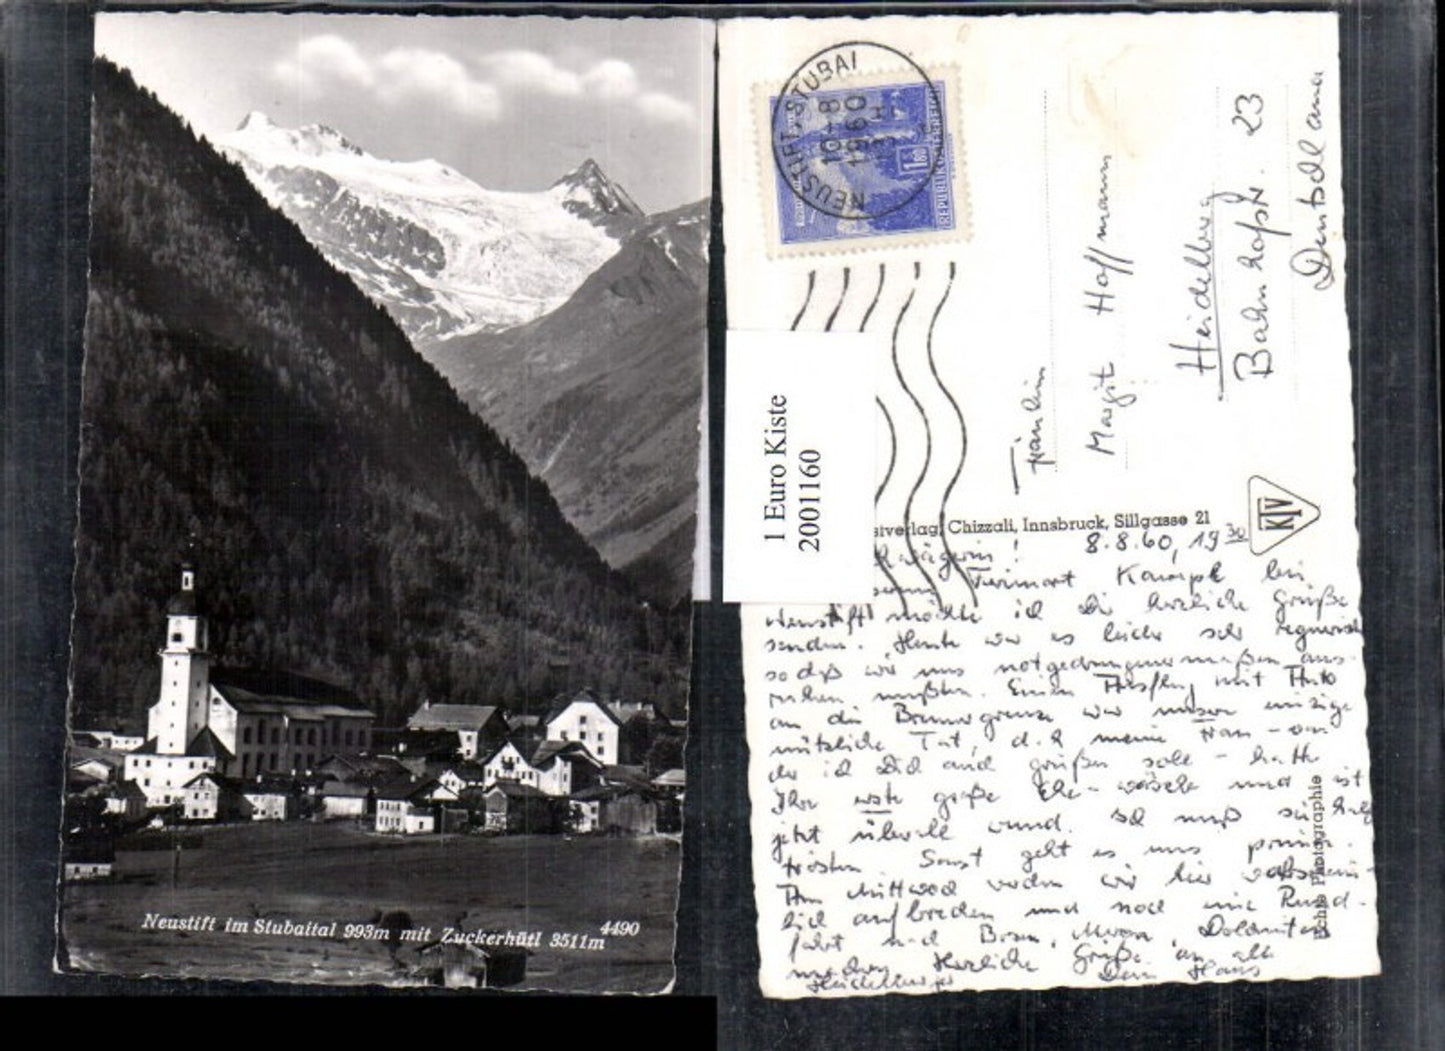 Neustift im Stubaital 993m mit Zuckerhütl 3511m
4490
NEUSTIFT, STUBAI
10-8
1960
1.80
REPUBLIK ÖSTERREICH
1 Euro Kiste
2001160
Fräulein
Margit Hoffmann
Heidelberg
Bahnhofstr. 23
Deutschland
Chizzali, Innsbruck, Sillgasse 21
KTV
Echte Photographie
8.8.60, 19 30
Kampl bei
Neustift möchte ich Dir herzliche Grüße
senden. Heute war es leider sehr regnerisch
so daß wir uns notgedrungenermaßen aus-
ruhen mußten. Einen Ausflug mit Auto
an die Brennergrenze war unsere einzige
nützliche Tat, d.h. meine Frau - von
der ich Dich auch grüßen soll - hatte
Ihre erste große Ehe-wäsche und ist
jetzt überall wund. Ich muß sie halt
trösten. Sonst geht es uns prima.
Am Mittwoch werden wir hier wahrschein-
lich aufbrechen und noch eine Rund-
fahrt nach Bozen, Meran, Dolomiten
machen. Herzliche Grüße an alle
Heidelberger Dein Hans